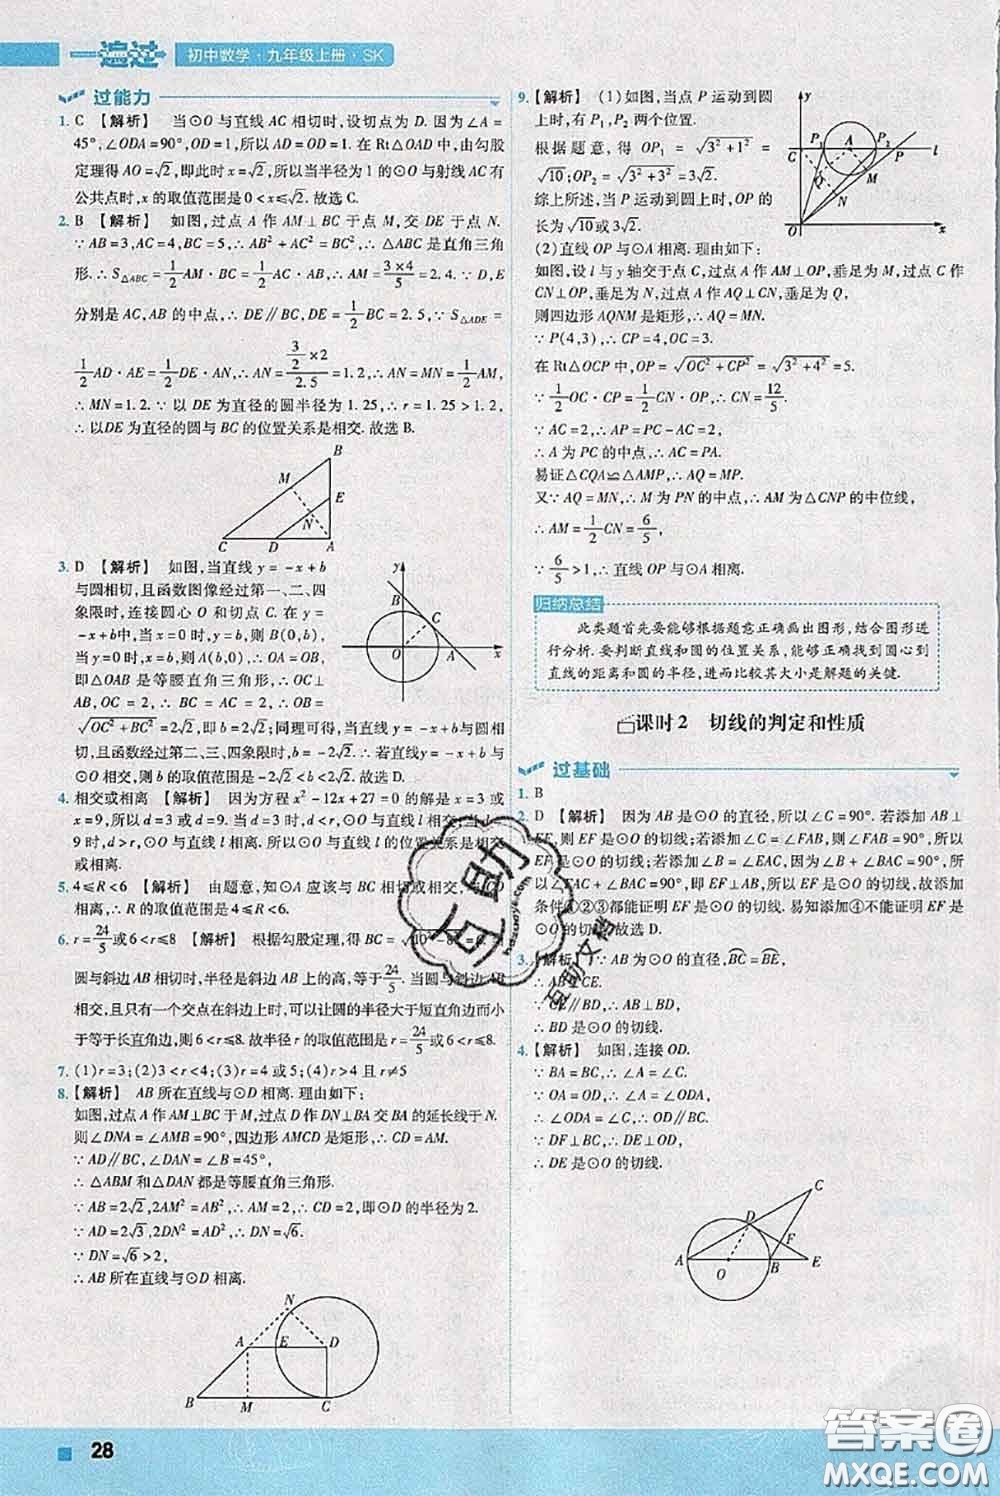 一遍过 初中数学·九年级上册·SK
过能力
1. C 【解析】 当⊙O与直线AC相切时,设切点为D.因为∠A=
45°,∠ODA=90°,OD=1,所以AD=OD=1.在Rt△OAD中,由勾股
定理得AO=√2,即此时x=√2,所以当半径为1的⊙O与射线AC有
公共点时,x的取值范围是0<x≤√2.故选C.
2. B 【解析】 如图,过点A作AM⊥BC于点M,交DE于点N.
∵AB=3,AC=4,BC=5,∴AB²+AC²=BC²,∴△ABC是直角三角
形.∴S△ABC=1/2AM·BC=1/2AB·AC,∴AM=3×4/5=2.4.∵D,E
分别是AC,AB的中点,∴DE∥BC,DE=1/2BC=2.5,∴S△ADE=
1/2AD·AE=1/2DE·AN,∴AN=(3/2×2)/2.5=1.2,∴AN=MN=1/2AM,
∴MN=1.2.∵以DE为直径的圆半径为1.25,∴r=1.25>1.2,
∴以DE为直径的圆与BC的位置关系是相交.故选B.
B
M
E
N
C D A
3. D 【解析】 如图,当直线y=-x+b
与圆相切,且函数图像经过第一、二、四
象限时,连接圆心O和切点C.在y=
-x+b中,当x=0时,y=b,则B(0,b),
当y=0时,x=b,则A(b,0),∴OA=OB,
即△OAB是等腰直角三角形,∴OC=
BC,OC=2,∴BC=OC=2,∴OB=
√(OC²+BC²)=2√2,即b=2√2.同理可得,当直线y=-x+b与圆相
切,且函数经过第二、三、四象限时,b=-2√2.若直线y=-x+b
与⊙O相交,则b的取值范围是-2√2<b<2√2.故选D.
y
B
C
O A x
4. 相交或相离 【解析】 因为方程x²-12x+27=0的解是x=3或
x=9,所以d=3或d=9.当d=3时,⊙O与直线l相交;当d=
9时,⊙O与直线l相离.所以⊙O与直线l的位置关系是相交
或相离.
5. 4≤R<6 【解析】 由题意,知⊙A应该与BC相切或相交,与BD
相离,∴R的取值范围是4≤R<6.
6. r=24/5或6<r≤8 【解析】 根据勾股定理,得BC=√(10²-8²)=6.当
圆与斜边AB相切时,半径是斜边AB上的高,等于24/5.当圆与斜边AB
相交,且只有一个交点在斜边上时,可以让圆的半径大于短直角边而小
于等于长直角边,则6<r≤8.故半径r的取值范围是r=24/5或6<r≤8.
7. (1)r=3;(2)3<r<4;(3)4<r≤5;(4)r>4且r≠5
8. 【解析】 AB所在直线与⊙D相离.理由如下:
如图,过点A作AM⊥BC于M,过点D作DN⊥BA交BA的延长线于N.
则∠DNA=∠AMB=90°,四边形AMCD是矩形,∴CD=AM.
∵AD∥BC,∴∠DAN=∠B=45°,
∴△ABM和△DAN都是等腰直角三角形.
∵AB=2√2,2AM²=AB²,∴AM=2,∴CD=2,即⊙D的半径为2.
∵AD=2√3,2DN²=AD²,∴DN=√6.
∵DN=√6>2,
∴AB所在直线与⊙D相离.
N
A E D
B M C
9. 【解析】 (1)如图,当点P运动到圆
上时,有P₁,P₂两个位置.
根据题意,得OP₁=√(3²+1²)=
√10;OP₂=√(3²+3²)=3√2.
综上所述,当点P运动到圆上时,OP的
长为√10或3√2.
y
P₁ A P₂
C P l
Q M
N
O x
(2)直线OP与⊙A相离.理由如下:
如图,设l与y轴交于点C,过点A作AM⊥OP,垂足为M,过点C作
CN⊥OP,垂足为N,过点A作AQ⊥CN,垂足为Q,
则四边形AQNM是矩形,∴AQ=MN.
∵P(4,3),∴CP=4,OC=3.
在Rt△OCP中,OP=√(OC²+CP²)=√(3²+4²)=5.
∵1/2OC·CP=1/2CN·OP,∴CN=12/5.
∵AC=2,∴AP=PC-AC=2,
∴A为PC的中点,∴AC=PA.
易证△CQA≌△AMP,∴AQ=MP.
又∵AQ=MN,∴M为PN的中点,∴AM为△CNP的中位线,
∴AM=1/2CN=6/5,
∵6/5>1,∴直线OP与⊙A相离.
归纳总结
此类题首先要能够根据题意正确画出图形,结合图形进
行分析.要判断直线和圆的位置关系,能够正确找出圆心到
直线的距离和圆的半径,进而比较其大小是解题的关键.
课时2 切线的判定和性质
过基础
1. B
2. D 【解析】 因为AB是⊙O的直径,所以OA⊥AB.若添加AB⊥
EF,则EF是⊙O的切线;若添加∠C=∠FAB=90°,
则EF是⊙O的切线;若添加∠B=∠EAC,因为∠B+∠BAC=90°,所以∠BAC+
∠EAC=90°,即∠BAE=90°,则EF是⊙O的切线,所以添加
条件①②③都能证明EF是⊙O的切线.易知添加④不能证明EF
是⊙O的切线.故选D.
3. 【解析】 ∵AB为⊙O的直径,BC=BE,
∴AB⊥CE.
∵CE∥BD,∴AB⊥BD,
∴BD是⊙O的切线.
4. 【解析】 如图,连接OD.
∵BA=BC,∴∠A=∠C.
∵OA=OD,∴∠A=∠ODA,
∴∠ODA=∠C,∴OD∥BC.
∵DF⊥BC,∴DE⊥OD,
∴DE是⊙O的切线.
C
D
F
A O B E
互助
互助文档
28
答案圈
MXQE.COM